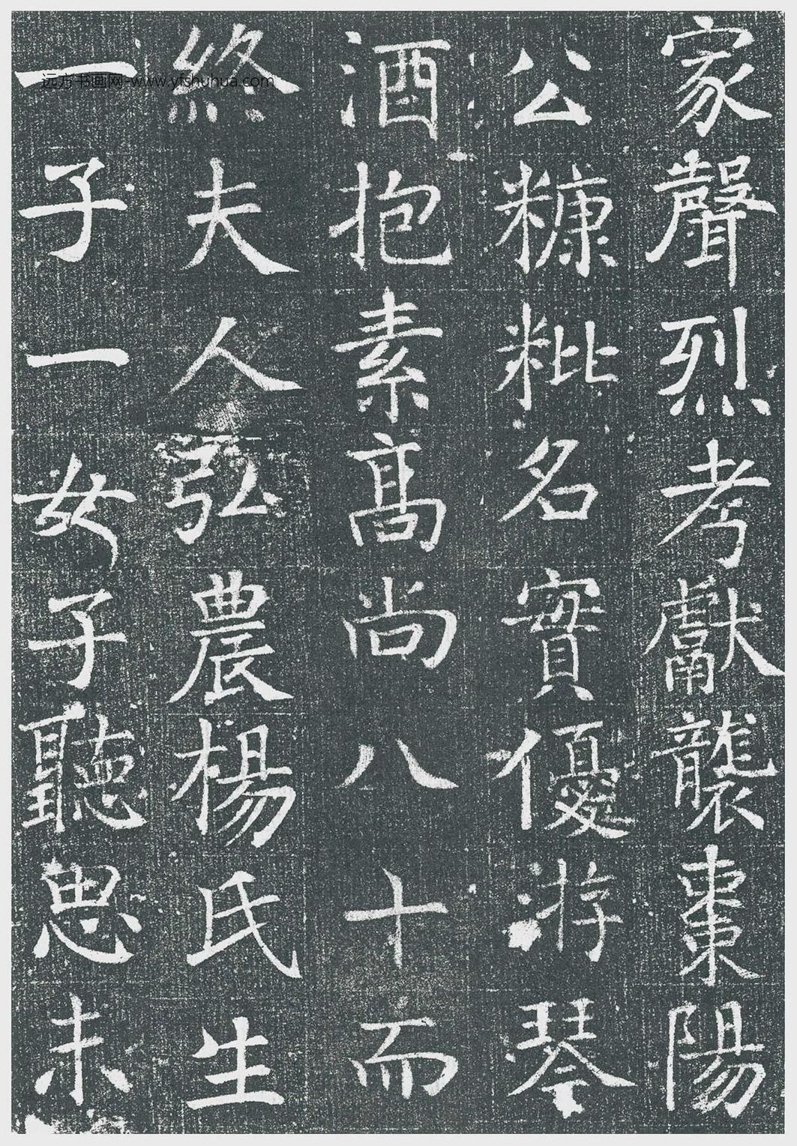 家聲烈考獻襲棗陽
公糠粃名實優游琴
酒抱素髙尚八十而
終夫人弘農楊氏生
一子一女子聽思未
远方书画网-www.yfshuhua.com